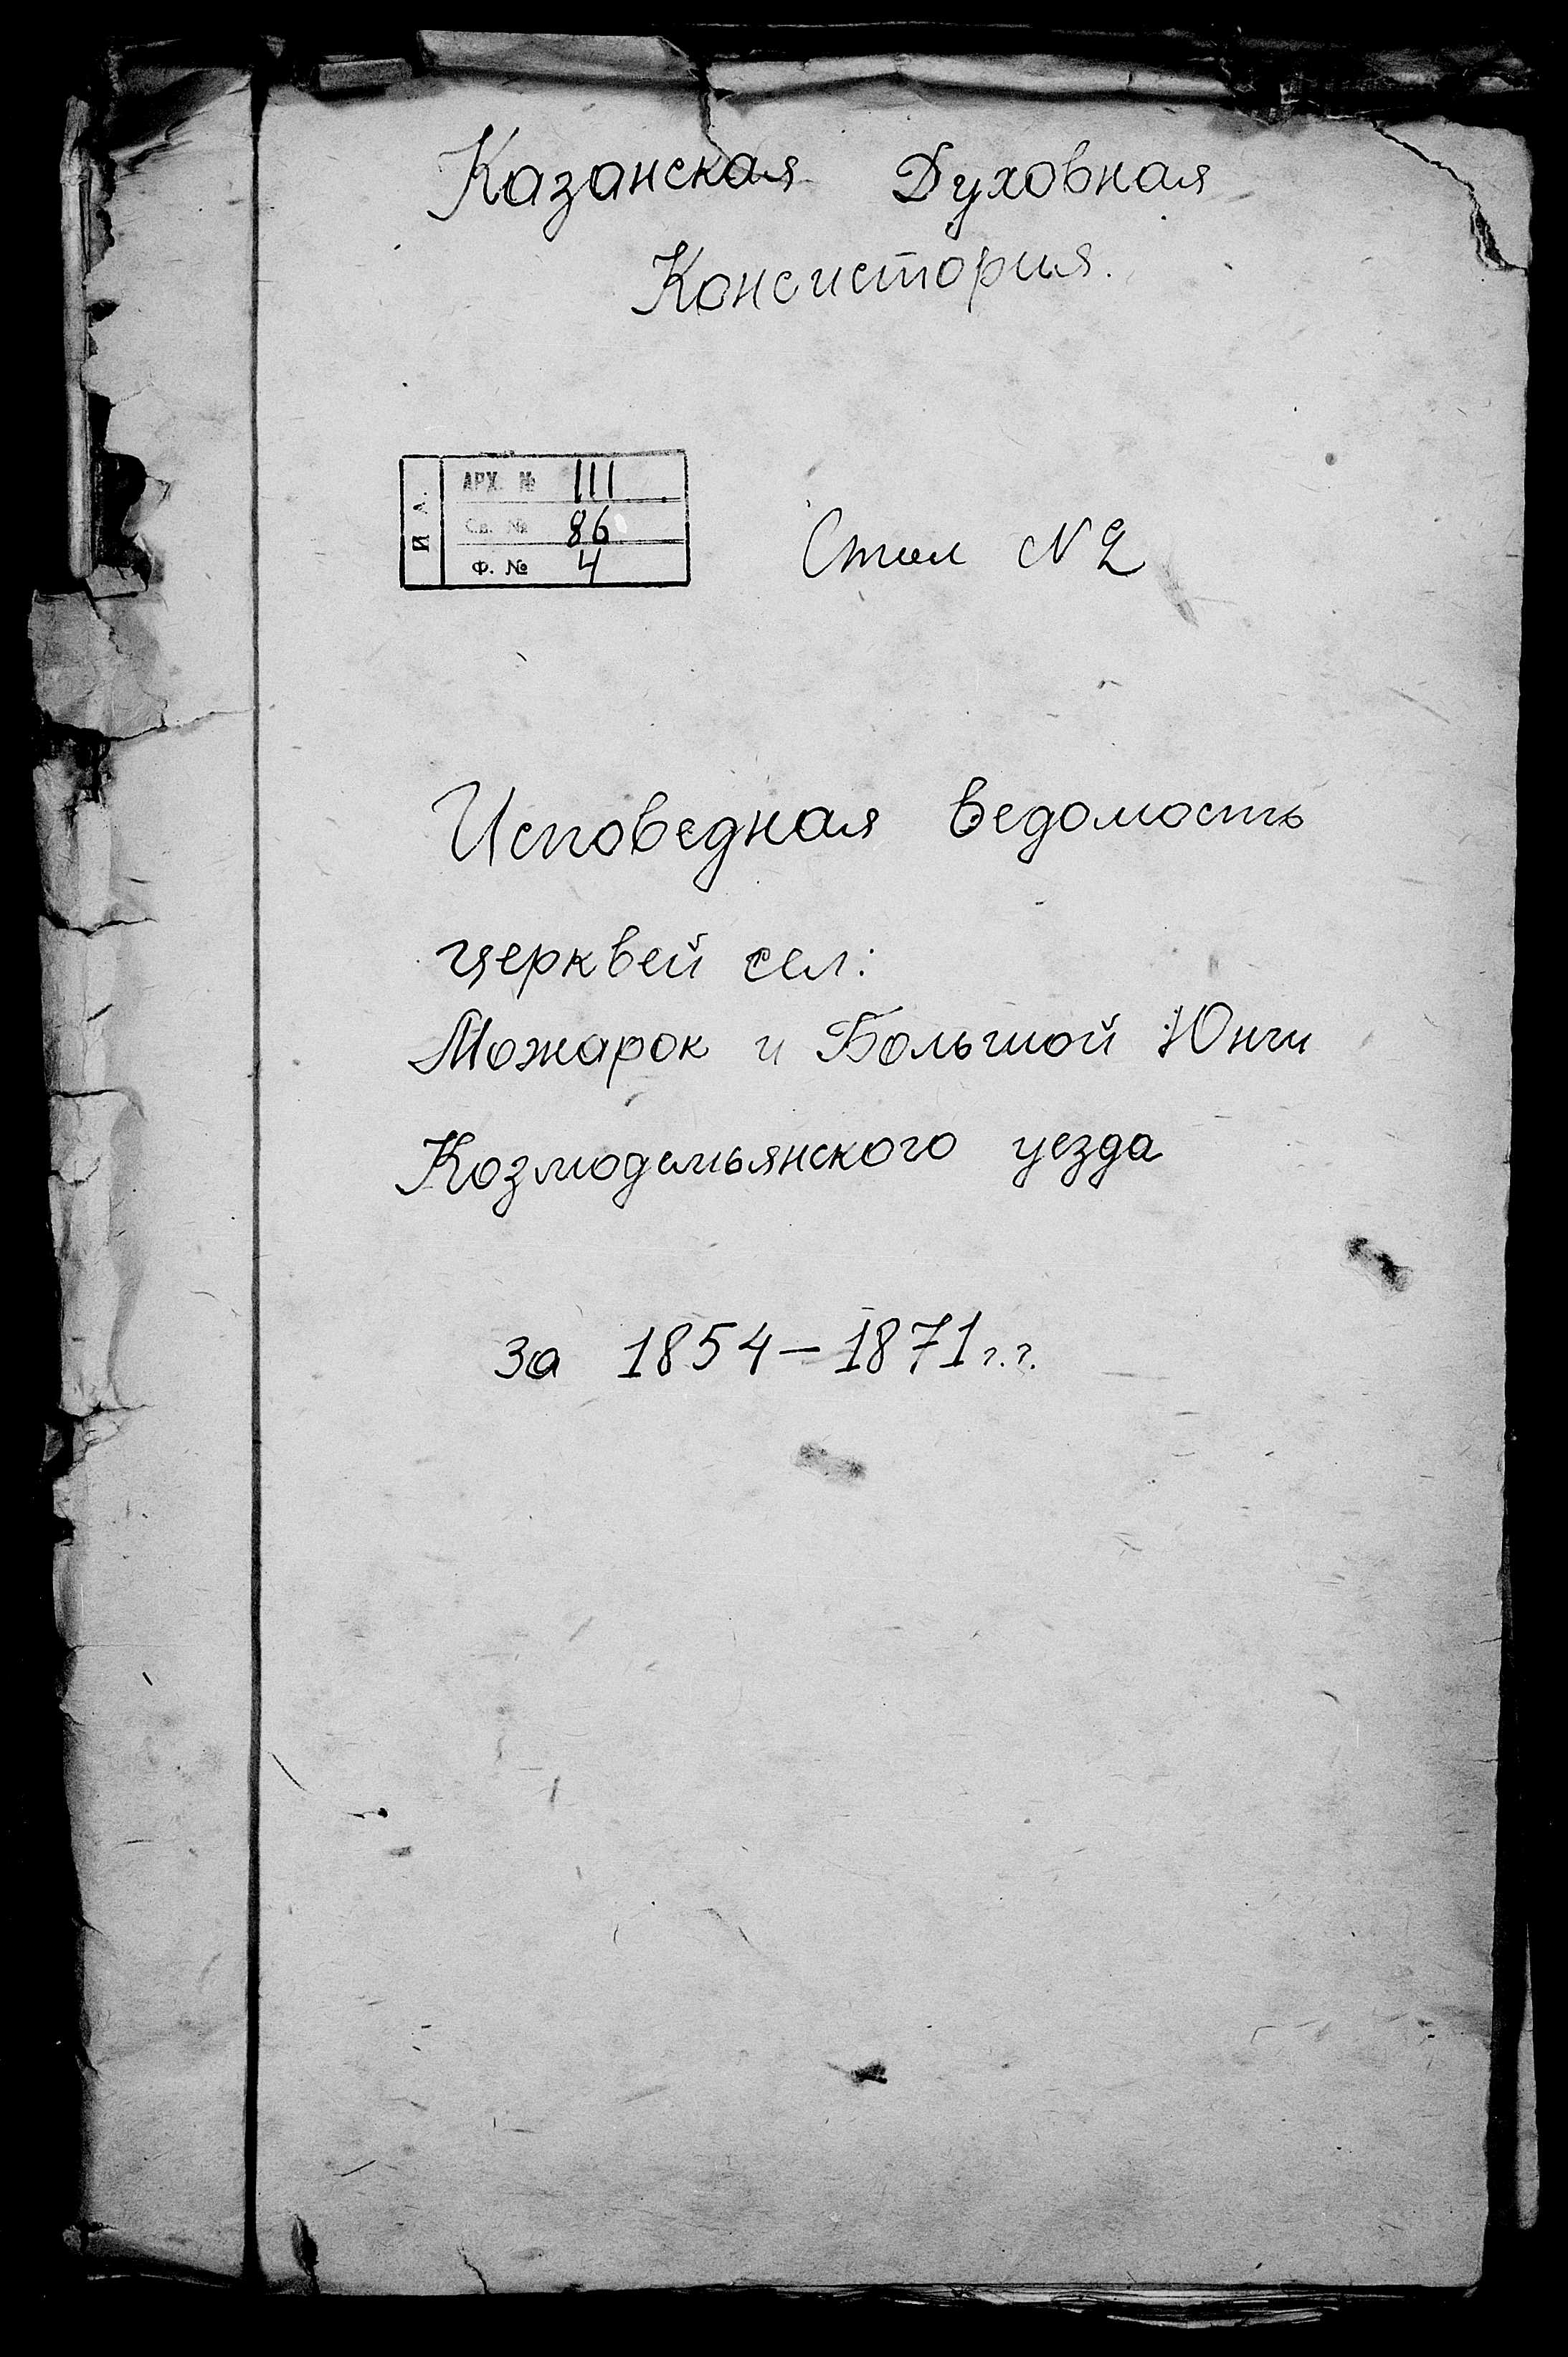 Казанская Духовная
Консистория.
И. А.
АРХ. № 111
Св. № 86
Ф. № 4
Стол N 2
Исповедная ведомость
церквей сел:
Можарок и Большой Юнги
Козмодемьянского уезда
за 1854 – 1871 г.г.